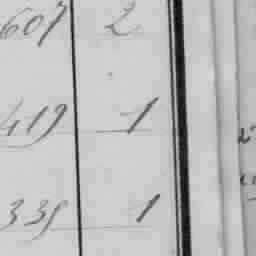 607 2
419 1
335 1